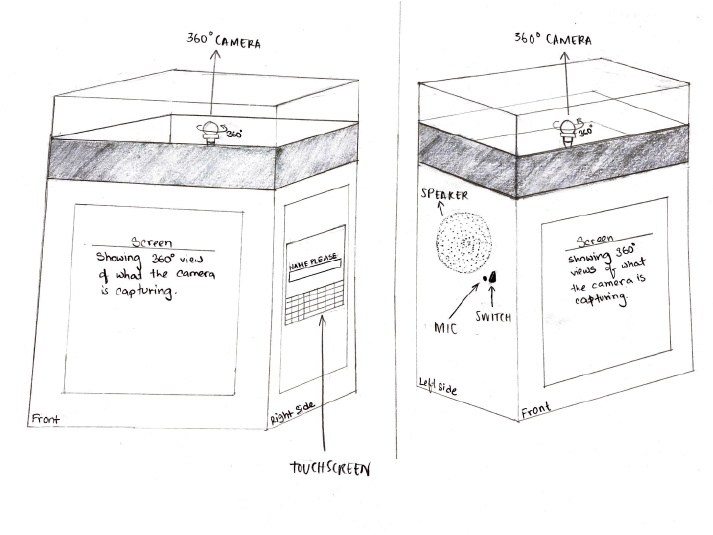 360° CAMERA
360°
Screen
Showing 360° view
of what the camera
is capturing.
NAME PLEASE
Front
Right side
TOUCHSCREEN
360° CAMERA
360°
SPEAKER
Screen
showing 360°
views of what
the camera is
capturing.
MIC
SWITCH
Left side
Front